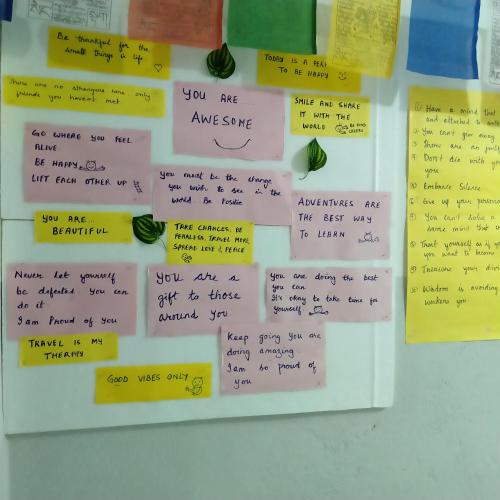 Be thankful for the
small things in life
TODAY IS A
TO BE HAPPY
There are no strangers here, only
friends you haven't met
YOU ARE
AWESOME
SMILE AND SHARE
IT WITH THE
WORLD
GO WHERE YOU FEEL
ALIVE
BE HAPPY
LIFT EACH OTHER UP
You must be the change
you wish to see in the
world Be Positive
ADVENTURES ARE
THE BEST WAY
TO LEARN
YOU ARE...
BEAUTIFUL
TAKE CHANCES, BE
FEARLESS, TRAVEL MORE,
SPREAD LOVE & PEACE
Never let yourself
be defeated you can
do it
I am Proud of you
You are a
gift to those
around you
You are doing the best
you can
It's okay to take time for
yourself
TRAVEL IS MY
THERAPY
Keep going you are
doing amazing
I am so proud of
you
GOOD VIBES ONLY
Have a mind that
and attached to
You can't give away
There are no
Don't die with
you
Embrace Silence
Give up your personal
You can't solve a
same mind that
Treat yourself as if
you want to become
Treasure your
Wisdom is avoiding
weaken you